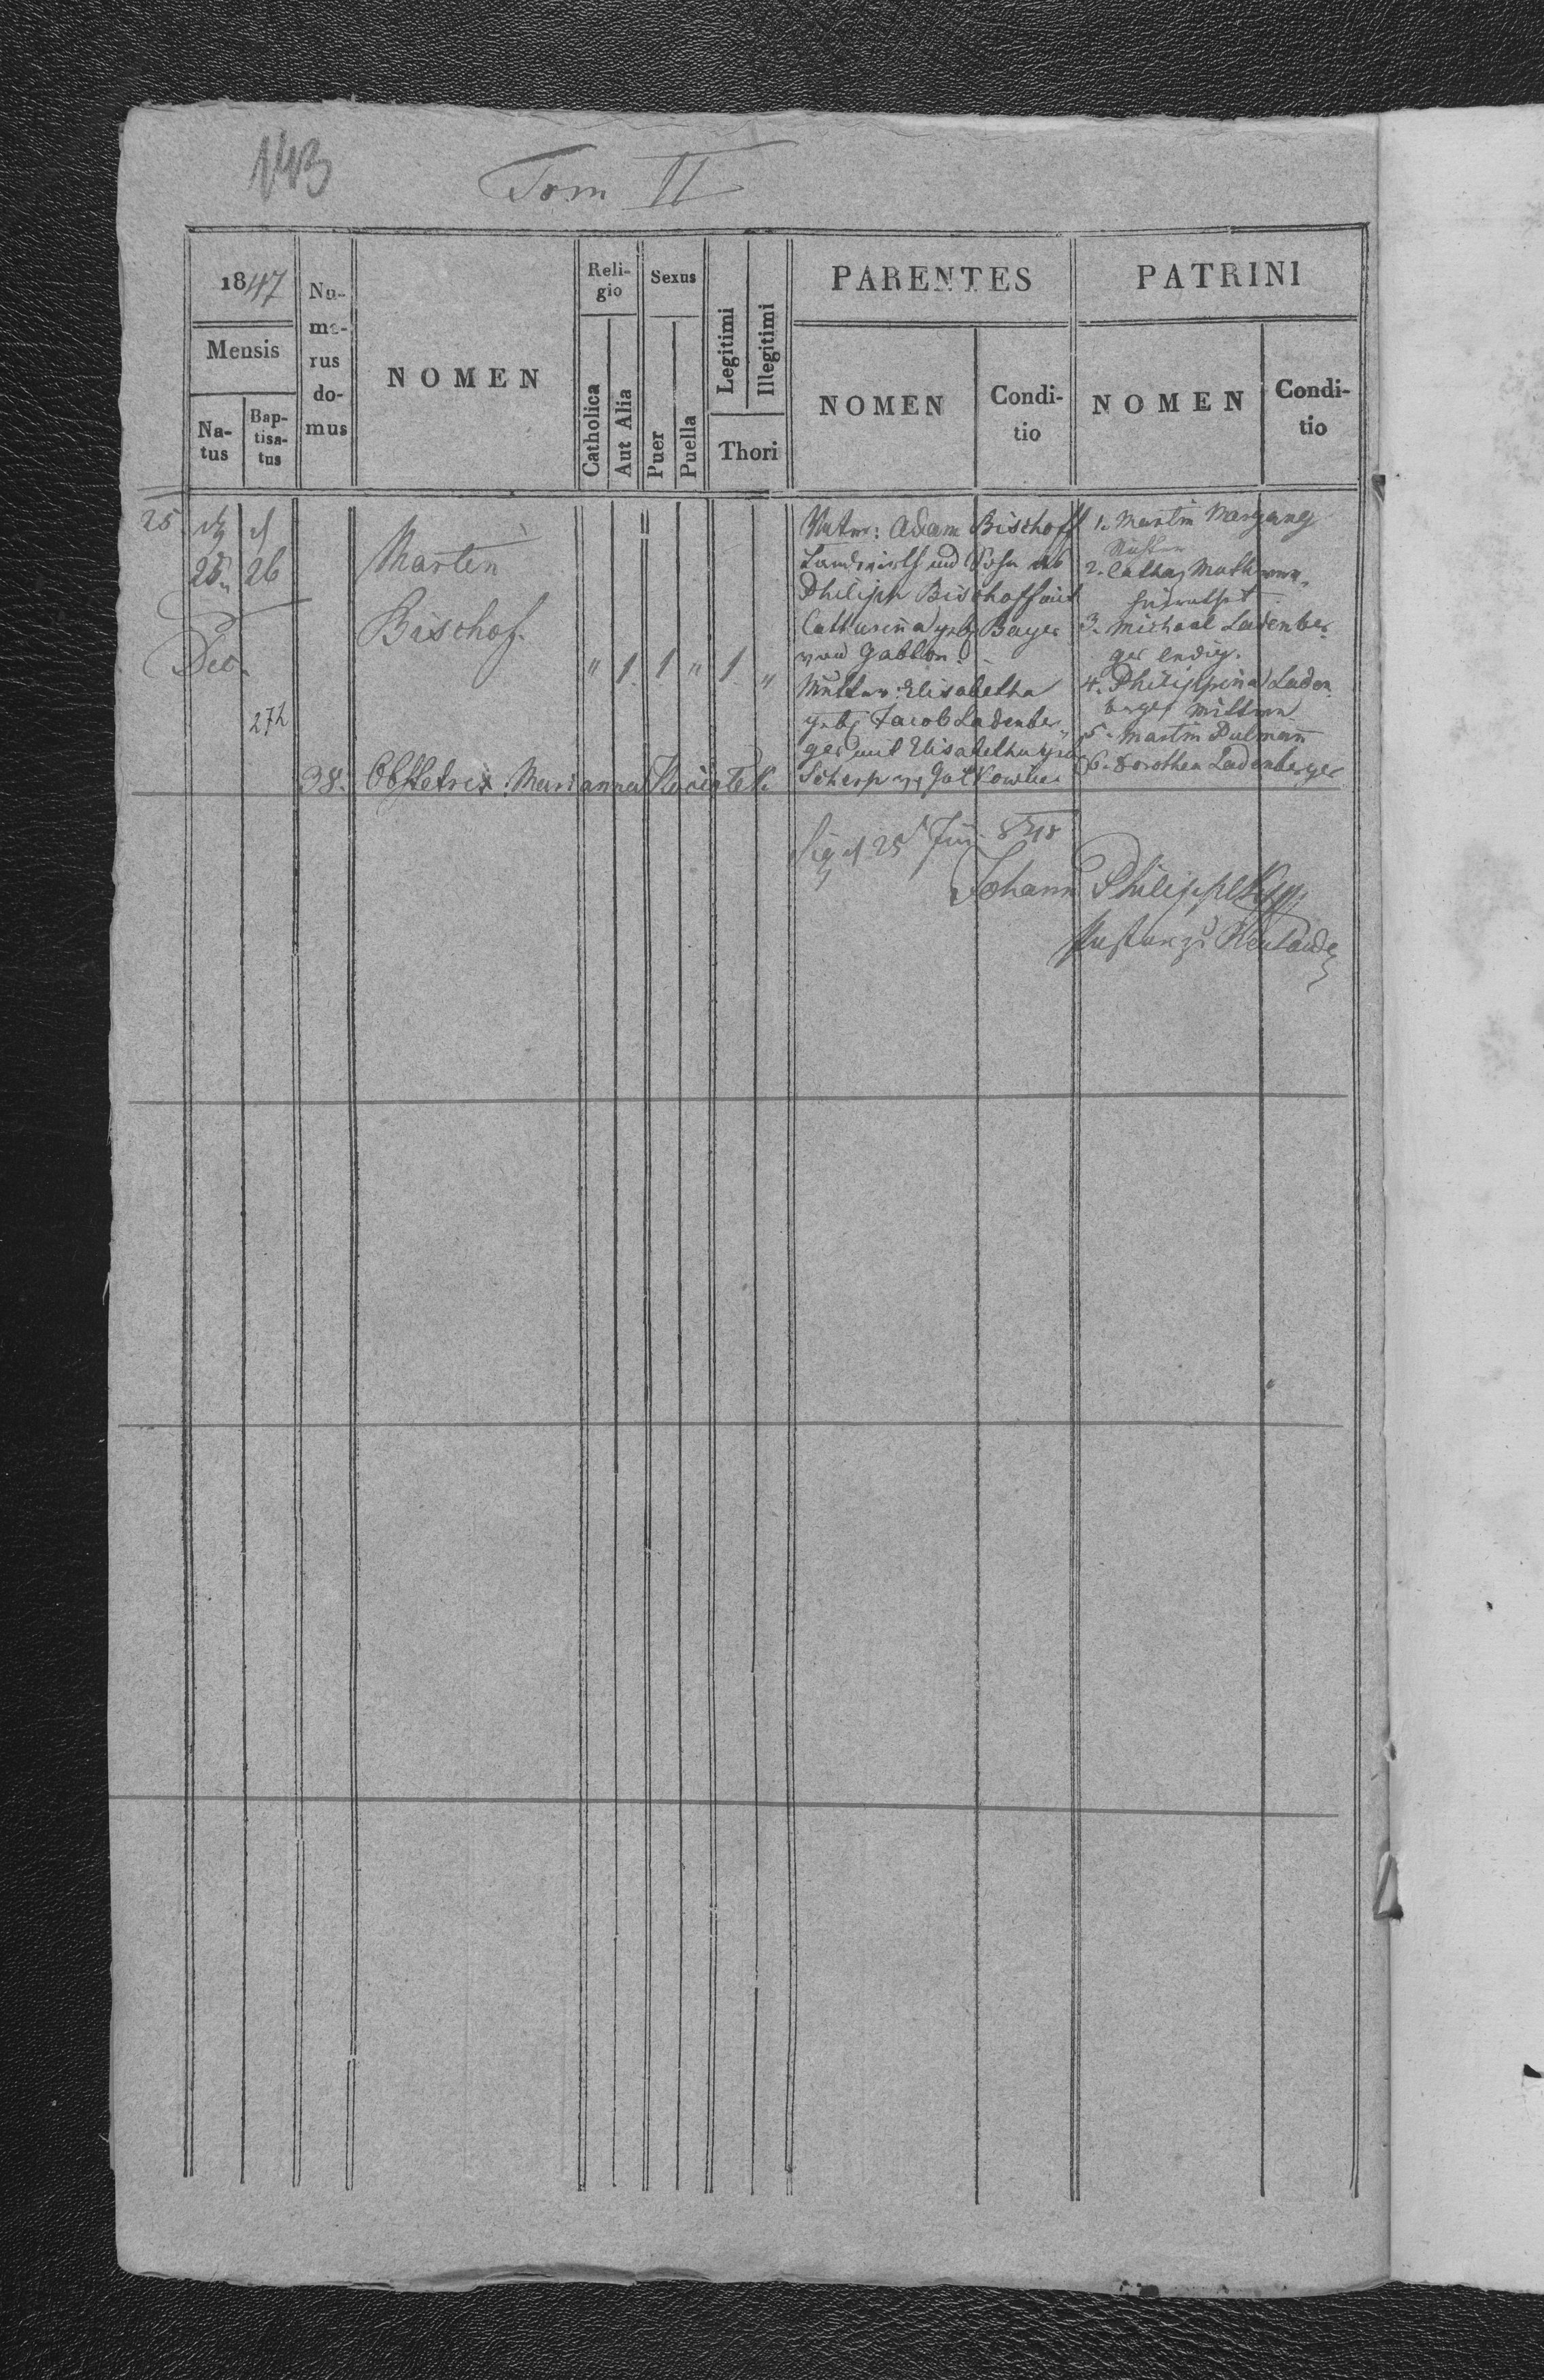 143
Tom II
1847
Mensis
Na-
tus
Bap-
tisa-
tus
Nu-
me-
rus
do-
mus
NOMEN
Reli-
gio
Catholica
Aut Alia
Sexus
Puer
Puella
Legitimi
Illegitimi
Thori
PARENTES
NOMEN
Condi-
tio
PATRINI
NOMEN
Condi-
tio
25.
25. 26
Dec.
274
38.
Martin
Bischof.
" 1. 1 " 1. "
Obstetrix: Marianna
Vater: Adam Bischoff
Landwirth und Sohn des
Philipp Bischoff mit
Catharina geb Bayer
von Gabton.
Mutter: Elisabetha
geb: Jacob Ladenber-
ger mit Elisabetha geb
Scherp
1. Martin
2. Cathar
3. Michael Ladenber-
ger ledig.
4. Philippina Laden-
berger
5. Martin Pulmann
6. Dorothea Ladenberger
Sig d 25 848
Johann Philipp